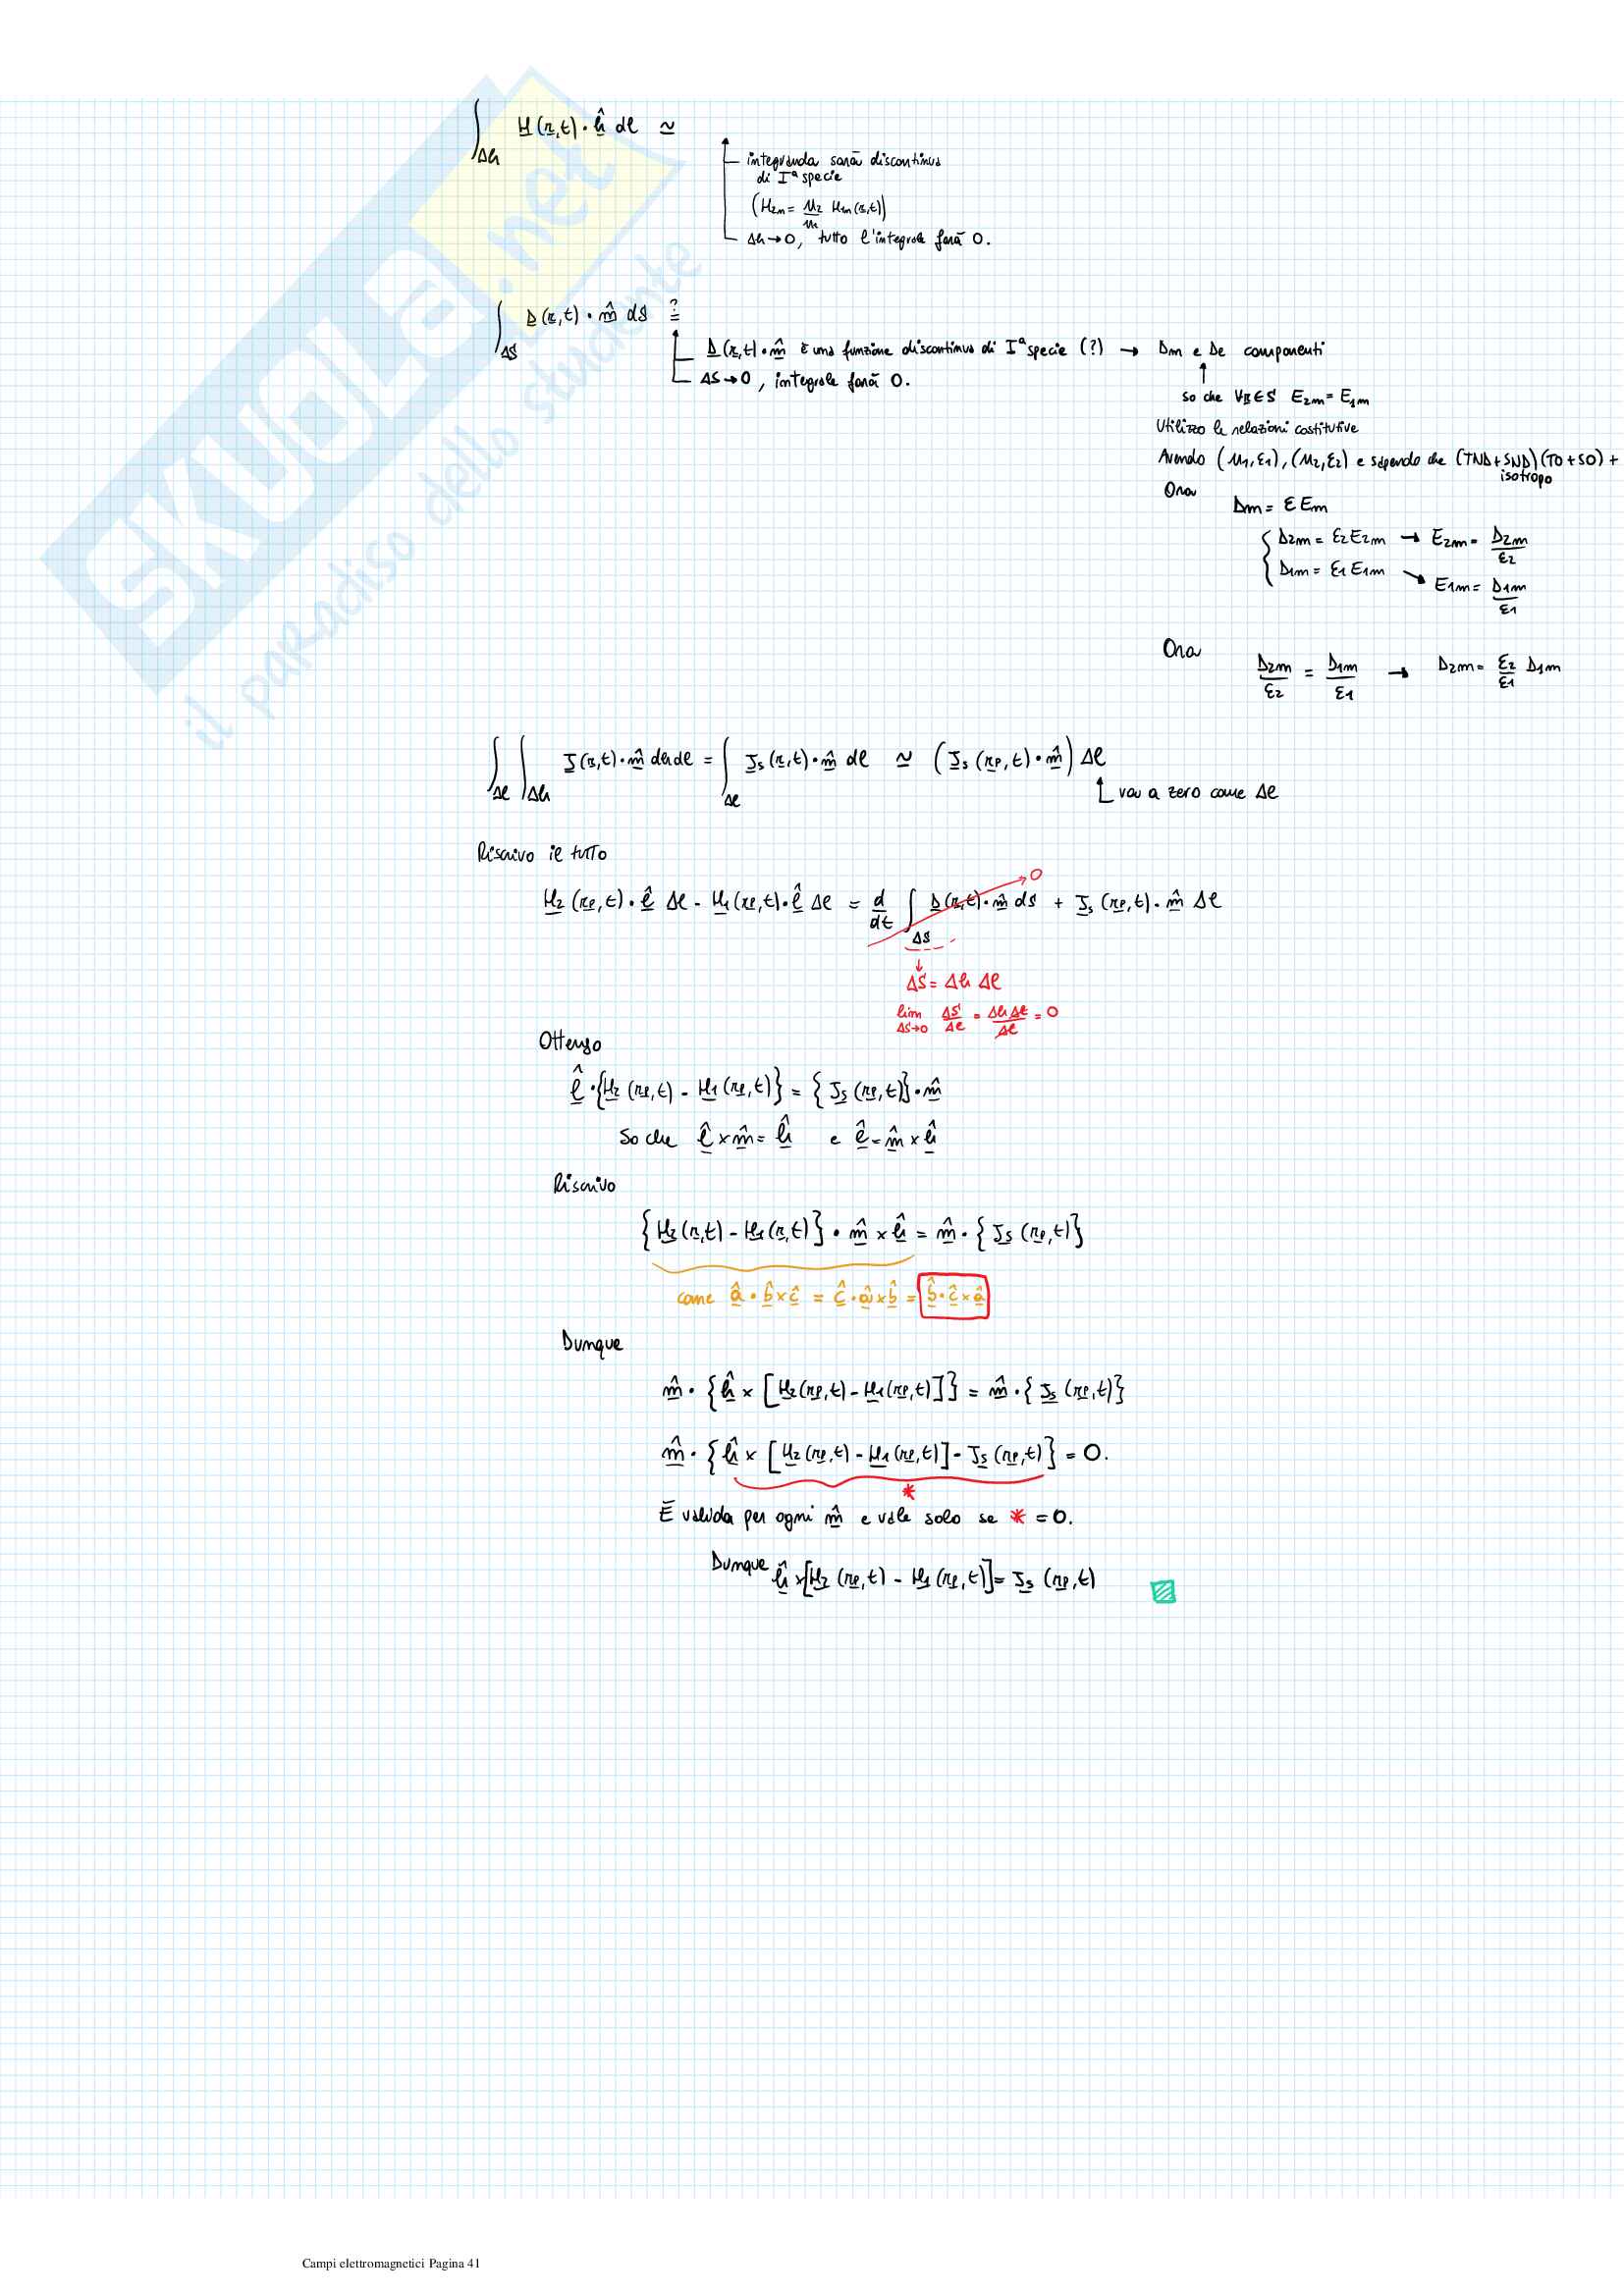 ∫_Δh H(r,t)·ĥ dl ≃
integranda sarà discontinua
di Iª specie
(H2m = μ2/μ1 H1m(r,t))
Δh→0, tutto l'integrale farà 0.
∫_ΔS D(r,t)·m̂ dS ≟
D(r,t)·m̂ è una funzione discontinua di Iª specie (?) → Dm e De componenti
ΔS→0, integrale farà 0.
so che ∀r∈S E2m = E1m
Utilizzo le relazioni costitutive
Avendo (μ1,ε1),(μ2,ε2) e sapendo che (TND+SND)(TO+SO)+
isotropo
Ora
Dm = εEm
{ D2m = ε2E2m → E2m = D2m/ε2
D1m = ε1E1m ↘ E1m = D1m/ε1
Ora
D2m/ε2 = D1m/ε1 → D2m = ε2/ε1 D1m
∫_Δl ∫_Δh J(r,t)·m̂ dh dl = ∫_Δl Js(r,t)·m̂ dl ≃ (Js(rp,t)·m̂) Δl
va a zero come Δl
Riscrivo il tutto
H2(rp,t)·l̂ Δl - H1(rp,t)·l̂ Δl = d/dt ∫_ΔS D(r,t)·m̂ dS + Js(rp,t)·m̂ Δl
0
ΔS = Δh Δl
lim_ΔS→0 ΔS/Δl = ΔhΔl/Δl = 0
Ottengo
l̂·{H2(rp,t) - H1(rp,t)} = {Js(rp,t)}·m̂
So che l̂ × m̂ = ĥ e l̂ = m̂ × ĥ
Riscrivo
{H2(r,t) - H1(r,t)}·m̂ × ĥ = m̂·{Js(rp,t)}
come â·b̂×ĉ = ĉ·â×b̂ = b̂·ĉ×â
Dunque
m̂·{ĥ × [H2(rp,t) - H1(rp,t)]} = m̂·{Js(rp,t)}
m̂·{ĥ × [H2(rp,t) - H1(rp,t)] - Js(rp,t)} = 0.
*
È valida per ogni m̂ e vale solo se * = 0.
Dunque ĥ×[H2(rp,t) - H1(rp,t)] = Js(rp,t)
SKUOLA.net
il paradiso dello studente
Campi elettromagnetici Pagina 41